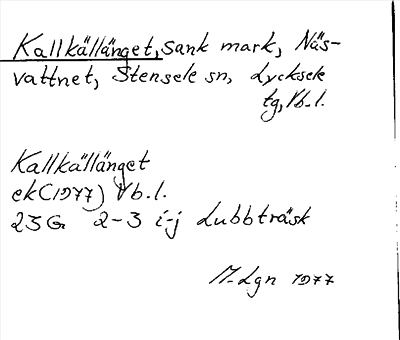 Kallkällänget, sank mark, Näs-
vattnet, Stensele sn, Lycksele
tg, Vb.l.
Kallkällänget
ek (1977) Vb.l.
23G 2-3 i-j Lubbträsk
M-Lgn 1977